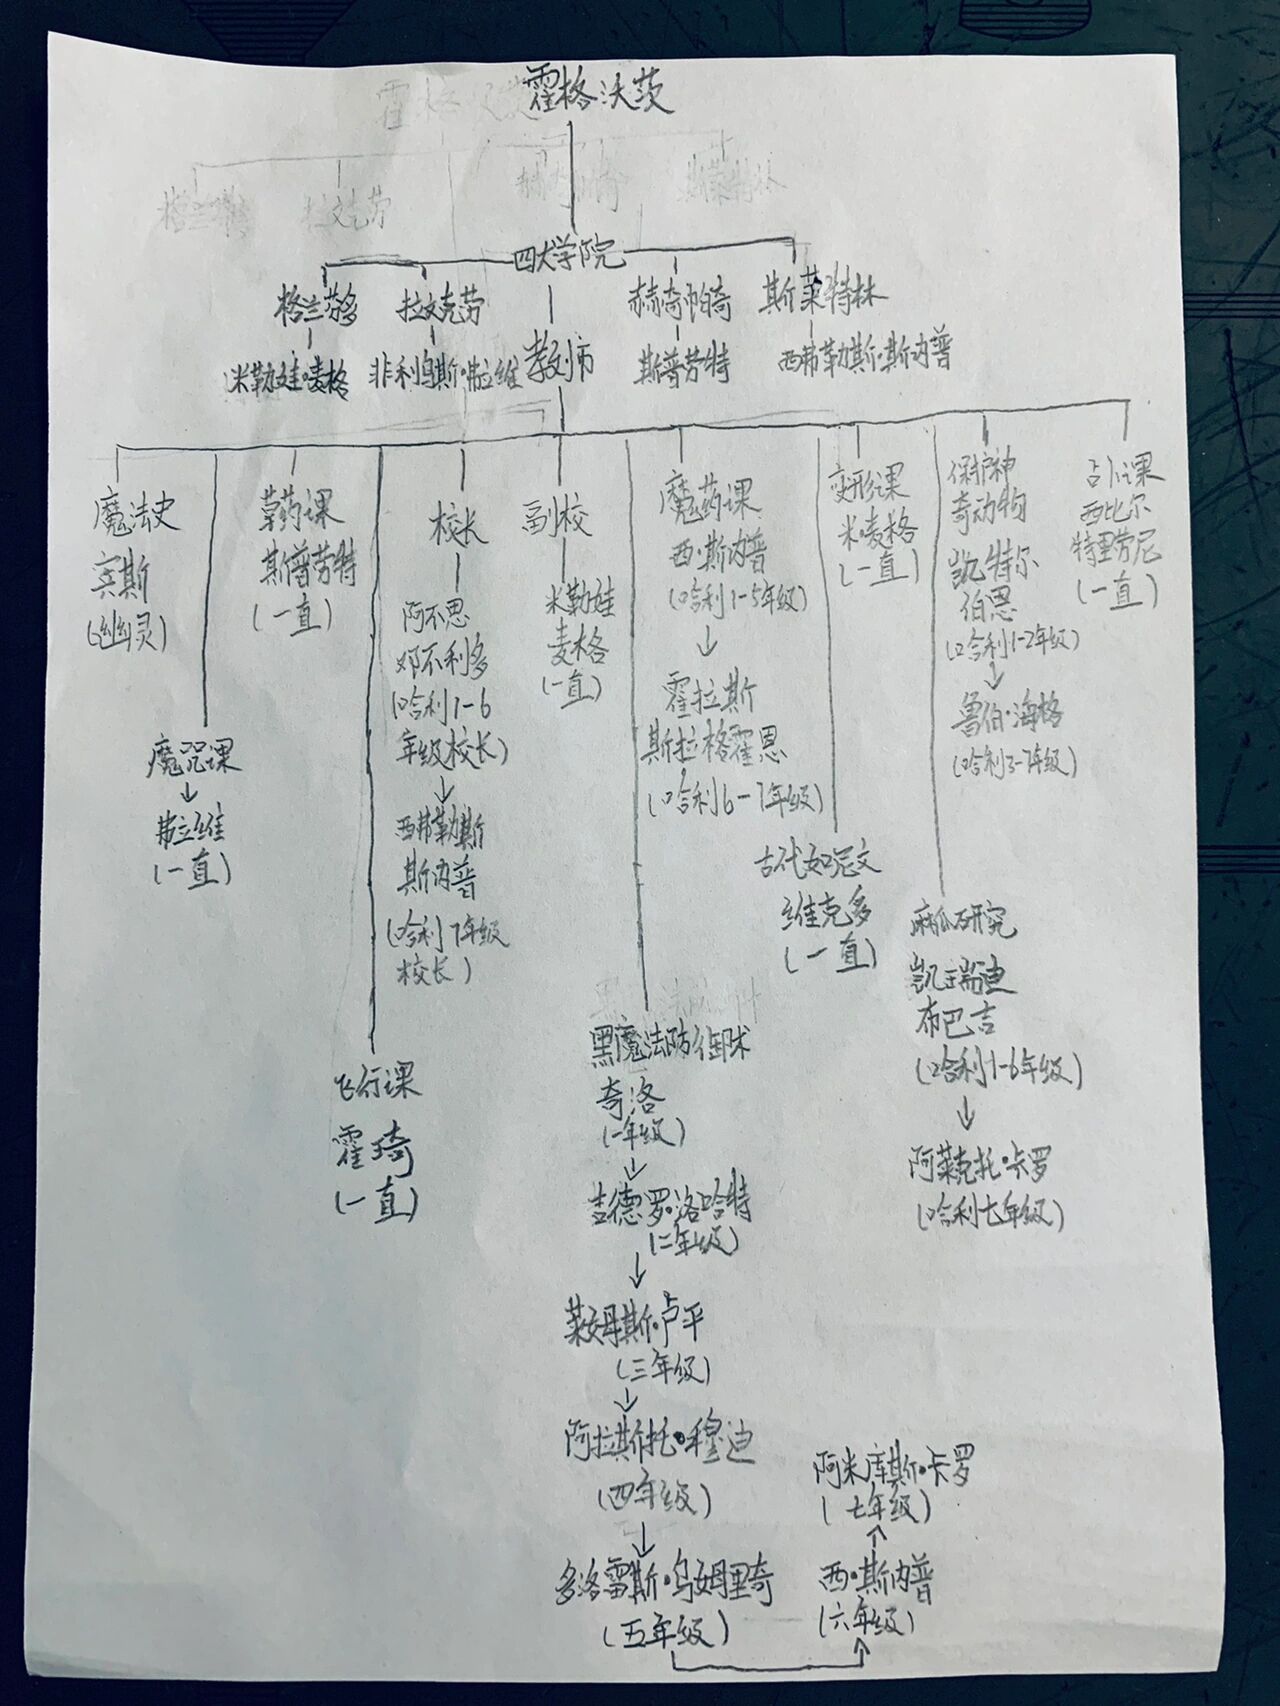 霍格沃茨
四大学院
格兰芬多
米勒娃·麦格
拉文克劳
非利乌斯·弗立维
教师
赫奇帕奇
斯普劳特
斯莱特林
西弗勒斯·斯内普
魔法史
宾斯
(幽灵)
魔咒课
弗立维
(一直)
草药课
斯普劳特
(一直)
飞行课
霍琦
(一直)
校长
阿不思
邓不利多
(哈利1-6
年级校长)
西弗勒斯
斯内普
(哈利7年级
校长)
副校
米勒娃
麦格
(一直)
黑魔法防御术
奇洛
(一年级)
吉德罗·洛哈特
(二年级)
莱姆斯·卢平
(三年级)
阿拉斯托·穆迪
(四年级)
多洛雷斯·乌姆里奇
(五年级)
西·斯内普
(六年级)
阿米库斯·卡罗
(七年级)
魔药课
西·斯内普
(哈利1-5年级)
霍拉斯
斯拉格霍恩
(哈利6-7年级)
古代如尼文
维克多
(一直)
变形课
米·麦格
(一直)
麻瓜研究
凯瑞迪
布巴吉
(哈利1-6年级)
阿莱克托·卡罗
(哈利七年级)
保护神
奇动物
凯·特尔
伯恩
(哈利1-2年级)
鲁伯·海格
(哈利3-7年级)
占卜课
西比尔
特里劳尼
(一直)
霍格沃茨
格兰芬多
拉文克劳
赫奇帕奇
斯莱特林